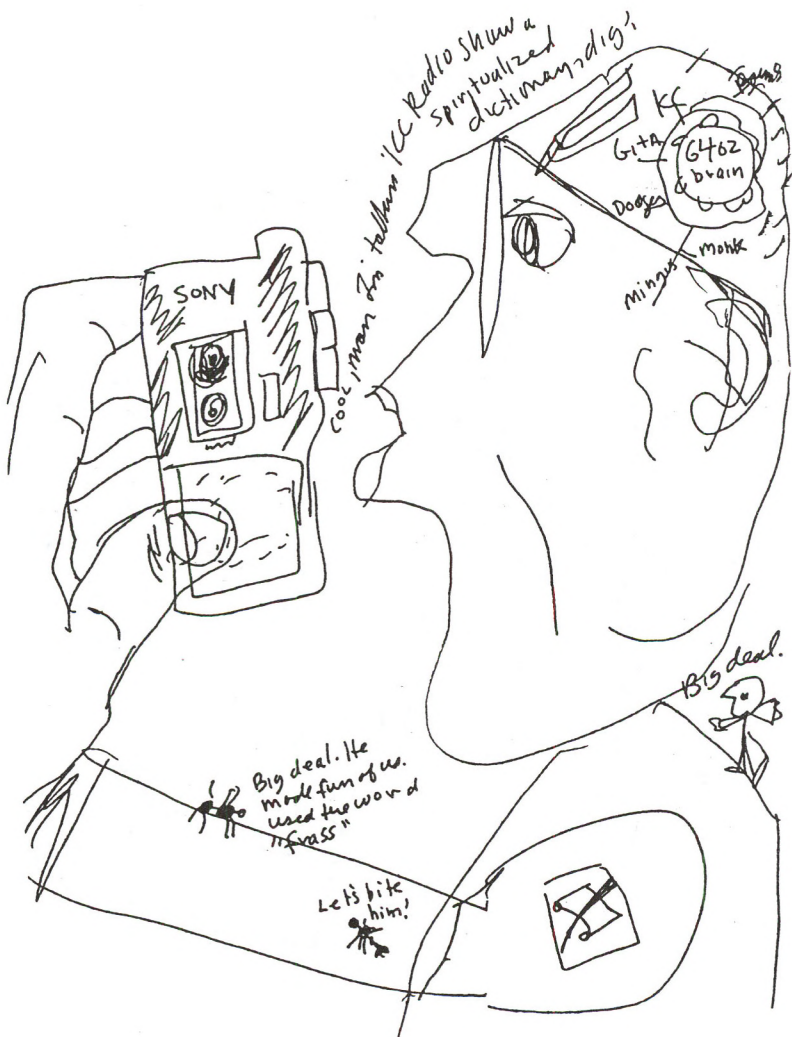 Cool, man I'm talkin KC Radio Show a
spiritualized
dictionary, dig!
KC
GitA
64oz
brain
Monk
Mingus
SONY
Big deal.
Big deal. He
made fun of us.
used the word
"frass"
Let's bite
him!